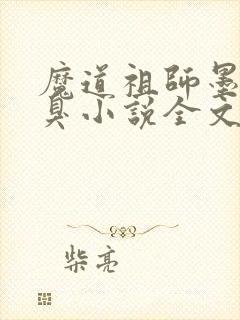 魔道祖師墨
臭小説全文
柴亮